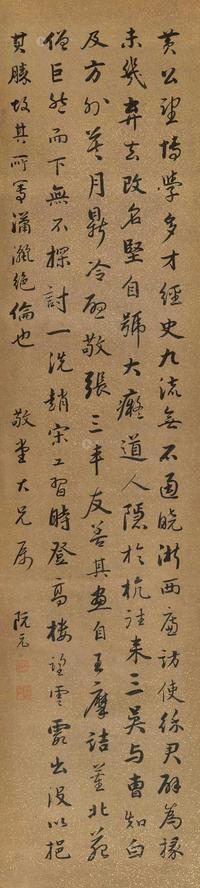 黄公望博学多才經史九流無不通曉浙西廉訪使徐君辟為掾
未幾弃去改名堅自號大癡道人隱於杭往来三吴与曹知白
及方外莫月鼎冷啟敬張三丰友善其畫自王摩詰董北苑
僧巨然而下無不探討一洗趙宋工習時登高樓望雲霞出没以挹
其勝故其所寫瀟灑絶倫也 敬堂大兄属 阮元